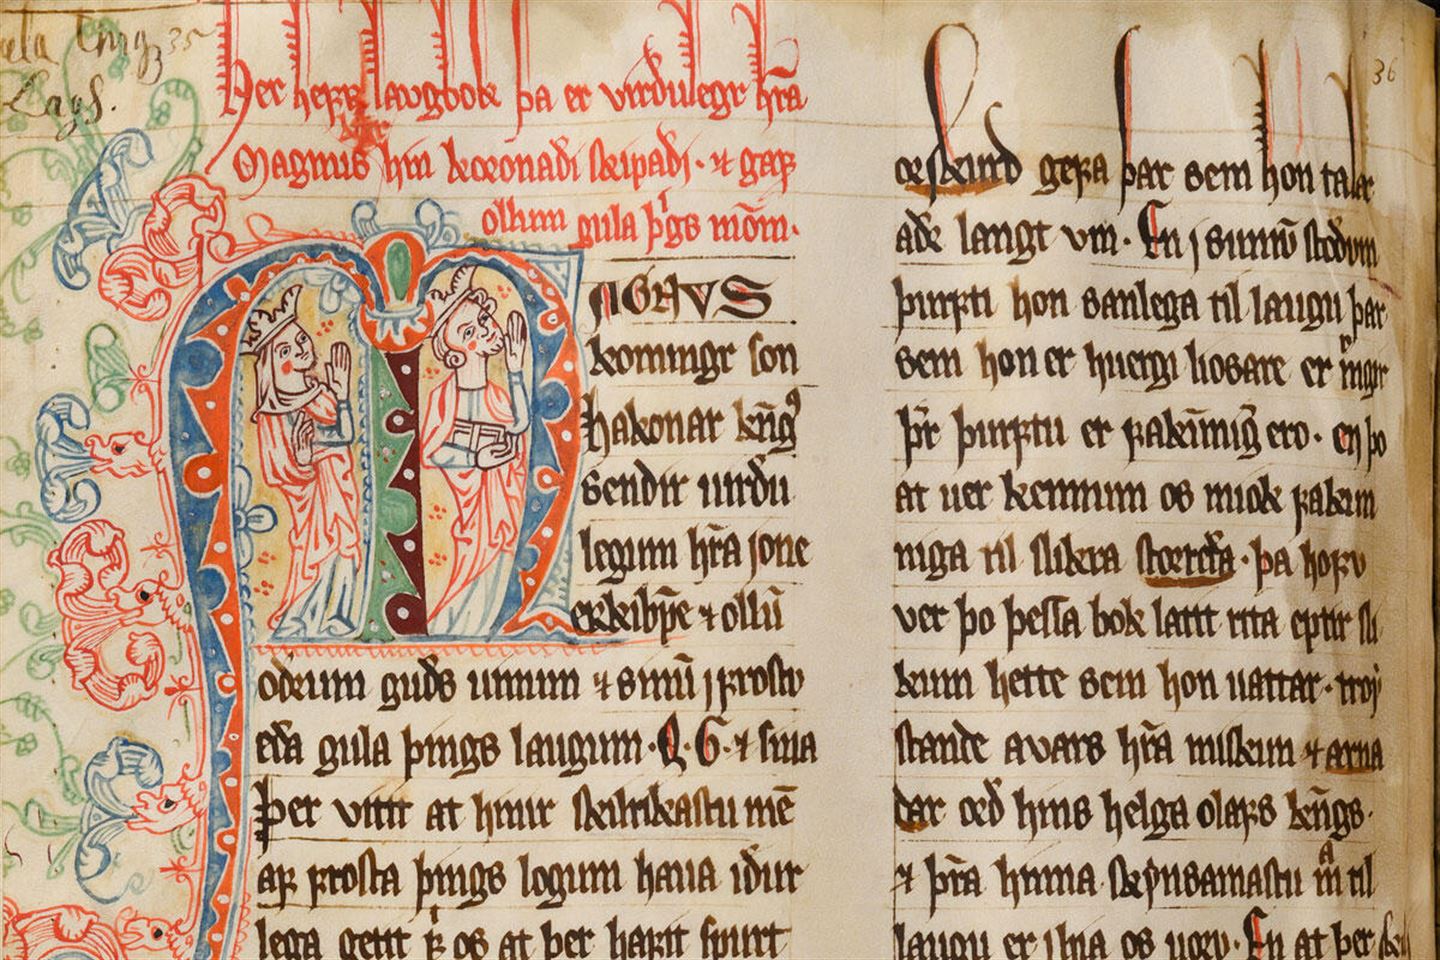 35
36
Lags.
Her hefr laugbok þa er virðulegr hr̄a
Magnus hin koronaði skipaði · ⁊ gaf
ollum gula þͥgs mōm.
AGNVS
konungr son
hakonar kn̄gs
sendir uirðu
legum hr̄a ione
erkibp̄e ⁊ ollū
oðrum guðs uinum ⁊ sinū i frosto
eða gula þings laugum · Q · G · ⁊ sina
Þer vitit at hinir skilrikastu mē
af frosta þings logum haua iður
lega getit f͛ os at þer hafit spurt
or skurd gera þar sem hon talar
aðr langt vm · En i sumū stoðum
þurfti hon sanlega til laugu þar
sem hon er huergi liosare er
þr̄ þurftu er fakūnig̅ ero · en þo
at uer kennum os miok fakun
niga til slikra storrða · þa hofu
ver þo þessa bok latit rita eptir sli
kum hette sem hon uattar · troy
stande a vars hr̄a miskun ⁊ arna
dar orð hins helga olafs kn̄gs ·
⁊ þr̄a hinna skynsamastu m̄ til
laugu er ihia os uoru · En at þer